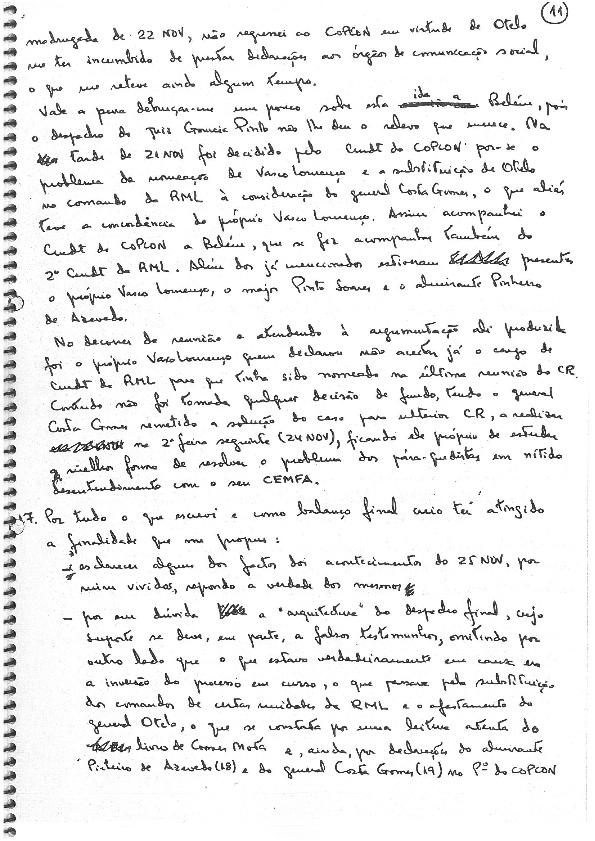 11
madrugada de 22 NOV, não regressei ao COPCON em virtude de Otelo
me ter incumbido de prestar declarações aos órgãos de comunicação social,
o que me reteve ainda algum tempo.
Vale a pena debruçar-me um pouco sobre esta ida a Belém, pois
o despacho do juiz Gomeiz Pinto não lhe deu o relevo que merece. Na
tarde de 21 NOV foi decidido pelo Cmdt do COPCON pôr-se o
problema da nomeação de Vasco Lourenço e a substituição de Otelo
no comando da RML à consideração do general Costa Gomes, o que aliás
teve a concordância do próprio Vasco Lourenço. Assim acompanhei o
Cmdt do COPCON a Belém, que se fez acompanhar também do
2º Cmdt da RML. Além dos já mencionados estiveram presentes
o próprio Vasco Lourenço, o major Pinto Soares e o almirante Pinheiro
de Azevedo.
No decorrer da reunião e atendendo à argumentação ali produzida
foi o próprio Vasco Lourenço quem declarou não aceitar já o cargo de
Cmdt da RML para que tinha sido nomeado na última reunião do CR.
Contudo não foi tomada qualquer decisão de fundo, tendo o general
Costa Gomes remetido a solução do caso para ulterior CR, a realizar
na 2ª feira seguinte (24 NOV), ficando ele próprio de estudar
a melhor forma de resolver o problema dos pára-quedistas em nítido
desentendimento com o seu CEMFA.
17. Por tudo o que escrevi e como balanço final creio ter atingido
a finalidade que me propus:
- esclarecer alguns dos factos dos acontecimentos do 25 NOV, por
mim vividos, repondo a verdade dos mesmos
- por em dúvida a "arquitectura" do despacho final, cujo
suporte se deve, em parte, a falsos testemunhos, omitindo por
outro lado que o que estava verdadeiramente em causa era
a inversão do processo em curso, o que passava pela substituição
dos comandos de certas unidades da RML e o afastamento do
general Otelo, o que se constata por uma leitura atenta do
livro de Gomes Mota e, ainda, por declarações do almirante
Pinheiro de Azevedo (18) e do general Costa Gomes (19) no Pº do COPCON